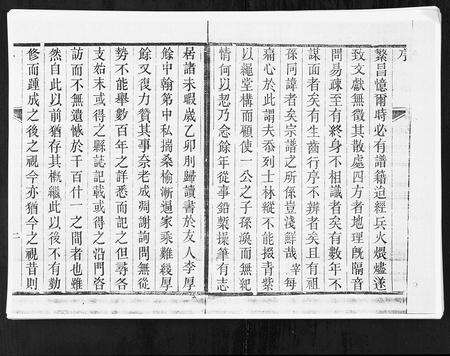 序
繁昌憶爾時必有譜籍迨經兵火煨燼遂
致文獻無徵其散處四方者地理旣隔音
問易疎至有終身不相識者矣有數年不
謀面者矣有生齒行序不辨者矣且有祖
孫同諱者矣宗譜之所係豈淺鮮哉宰每
痛心於此謂夫忝列士林縱不能掇青紫
以繩堂構而顧使一公之子孫渙而無紀
情何以恝乃念餘年從事鉛槧操筆有志
居諸未暇歲乙卯刖歸讀書於友人李厚
餘中翰第中私揣桑榆漸逼家乘難緩厚
餘又復力贊其事奈老成凋謝詢問無從
勢不能舉數百年之詳悉而記之但尋各
支始末或得之縣誌記載或得之沿門咨
訪而不無遺憾於千百什一之間者也雖
然自此以前猶存其槪繼此以後不有勤
修而踵成之後之視今亦猶今之視昔則
二